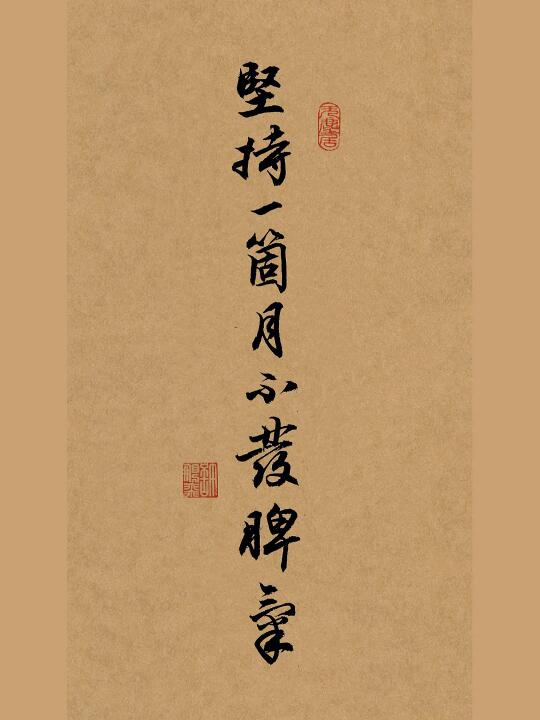 堅持一箇月不發脾氣